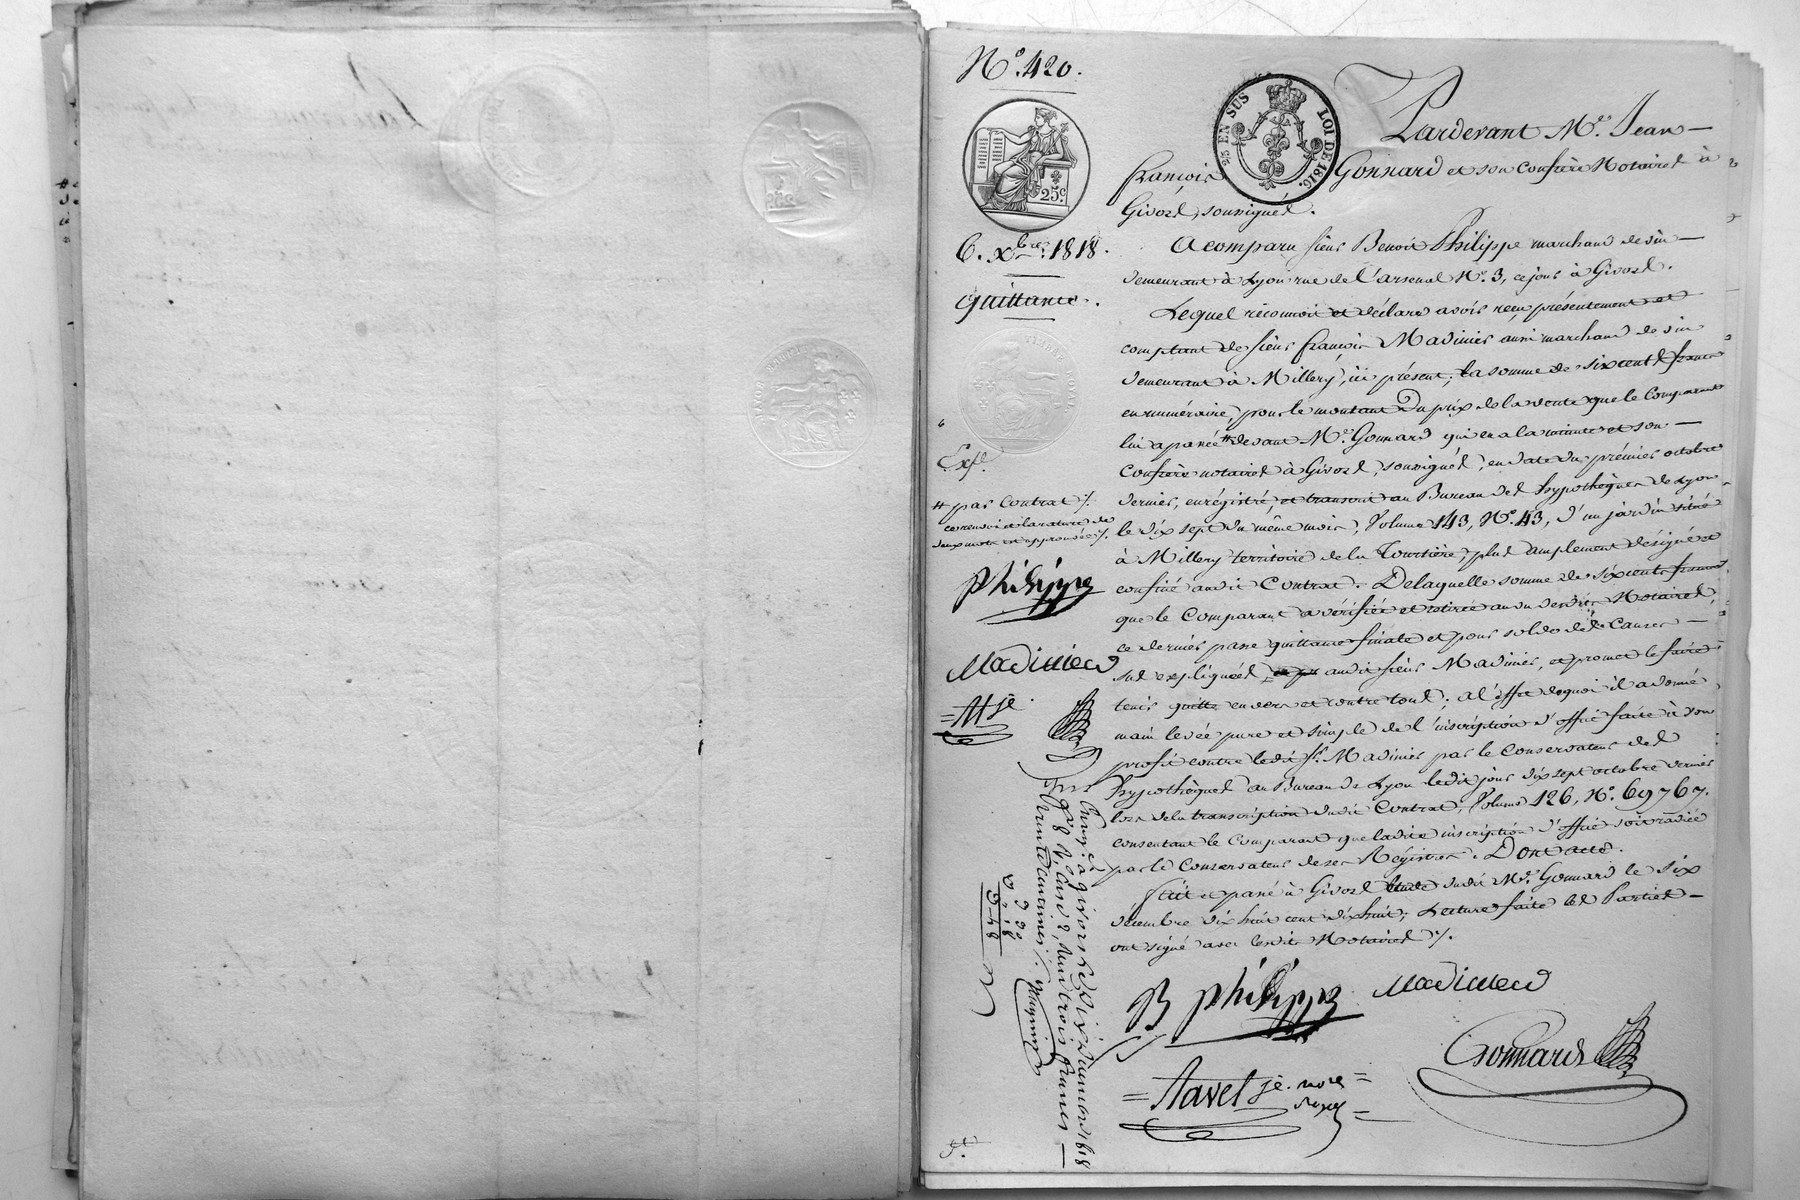 N.° 420.
25 EN SUS
LOI DE 1816.
25c.
6. xbre. 1818.
Quittance.
Pardevant Me. Jean
françois Gonnard et son Confrère Notaires à
Givors, soussignés.
A comparu sieur Benoit Philippe marchand de vin
demeurant à Lyon rue de l'arsenal N.° 3, ce jour à Givors.
Lequel reconnoit et déclare avoir reçu présentement et
comptant de sieur françois Madinier aussi marchand de vin
demeurant à Millery, ici présent, la somme de six cents francs
en numéraire, pour le montant du prix de la vente que le Comparant
lui a passée # devant Me. Gonnard qui en a la minute et son
Confrère notaires à Givors, soussignés, en date du premier octobre
dernier, enrégistré, et transcrit au Bureau des hypothèques de Lyon
le dix sept du même mois, Volume 143, N.° 43, d'un jardin situé
à Millery territoire de la Tourtière, plus amplement désigné et
confiné audit Contrat. De laquelle somme de six cents francs
que le Comparant a vérifiée et retirée au vu desdits Notaires,
ce dernier passe quittance finale et pour solde des Causes
sus expliquées, audit sieur Madinier, et promet le faire
tenir quitte envers et contre tous; a l'effet de quoi il a donné
main levée pure et simple de l'inscription d'office faite à son
profit contre ledit sr. Madinier par le Conservateur des
hypothèques au Bureau de Lyon ledit jour dix sept octobre dernier
lors de la transcription dudit Contrat, Volume 126, N.° 69767.
consentant le Comparant que ladite inscription d'office soit radiée
par le Conservateur de ses Régistres. Dont acte.
fait et passé à Givors Etude dudit Me. Gonnard le six
décembre dix huit cent dix huit; Lecture faite les Parties
ont signé avec lesdits Notaires ./.
B Philippe
Madinier
Gonnard
Expé.
# par Contrat ./.
ce renvoi et la rature de
deux mots est approuvée ./.
Philippe
Madinier
Enregé. à Givors le dix décembre 1818
fo. 8 Vo. Case 2, Reçu trois francs
trente centimes ./.